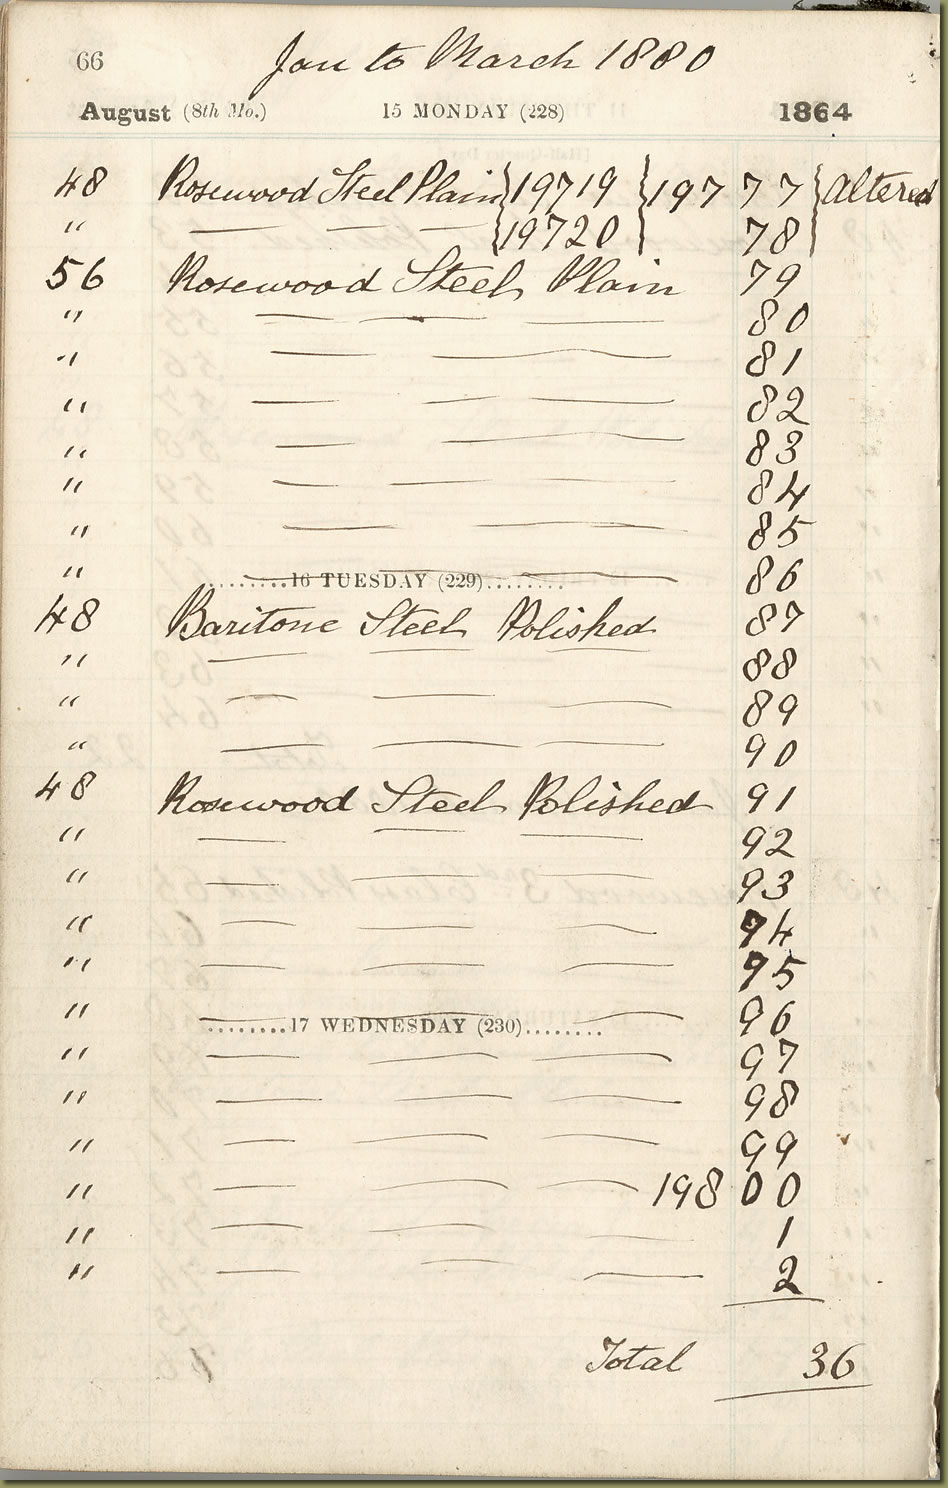 66 Jan to March 1880
August (8th Mo.) 15 MONDAY (228) 1864
48 Rosewood Steel Plain } 19719 } 197 77 } altered
" — — — } 19720 } 78 }
56 Rosewood Steel Plain 79
" — — — 80
" — — — 81
" — — — 82
" — — — 83
" — — — 84
" — — — 85
" — — — 86
........16 TUESDAY (229)........
48 Baritone Steel Polished 87
" — — — 88
" — — — 89
" — — — 90
48 Rosewood Steel Polished 91
" — — — 92
" — — — 93
" — — — 94
" — — — 95
" — — — 96
........17 WEDNESDAY (230)........
" — — — 97
" — — — 98
" — — — 99
" — — — 198 00
" — — — 1
" — — — 2
Total 36